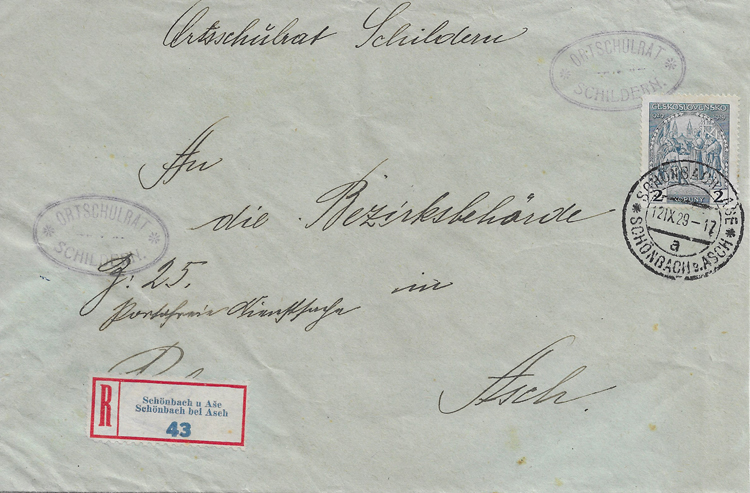 Ortsschulrat Schildern
ORTSCHULRAT
SCHILDERN.
ČESKOSLOVENSKO
2 2
SCHÖNBACH b. ASCH
12 IX 29 - 17
a
An
die Bezirksbehörde
ORTSCHULRAT
SCHILDERN.
Z: 25. in
Portofreie Dienstsache
Asch.
R
Schönbach u Aše
Schönbach bei Asch
43